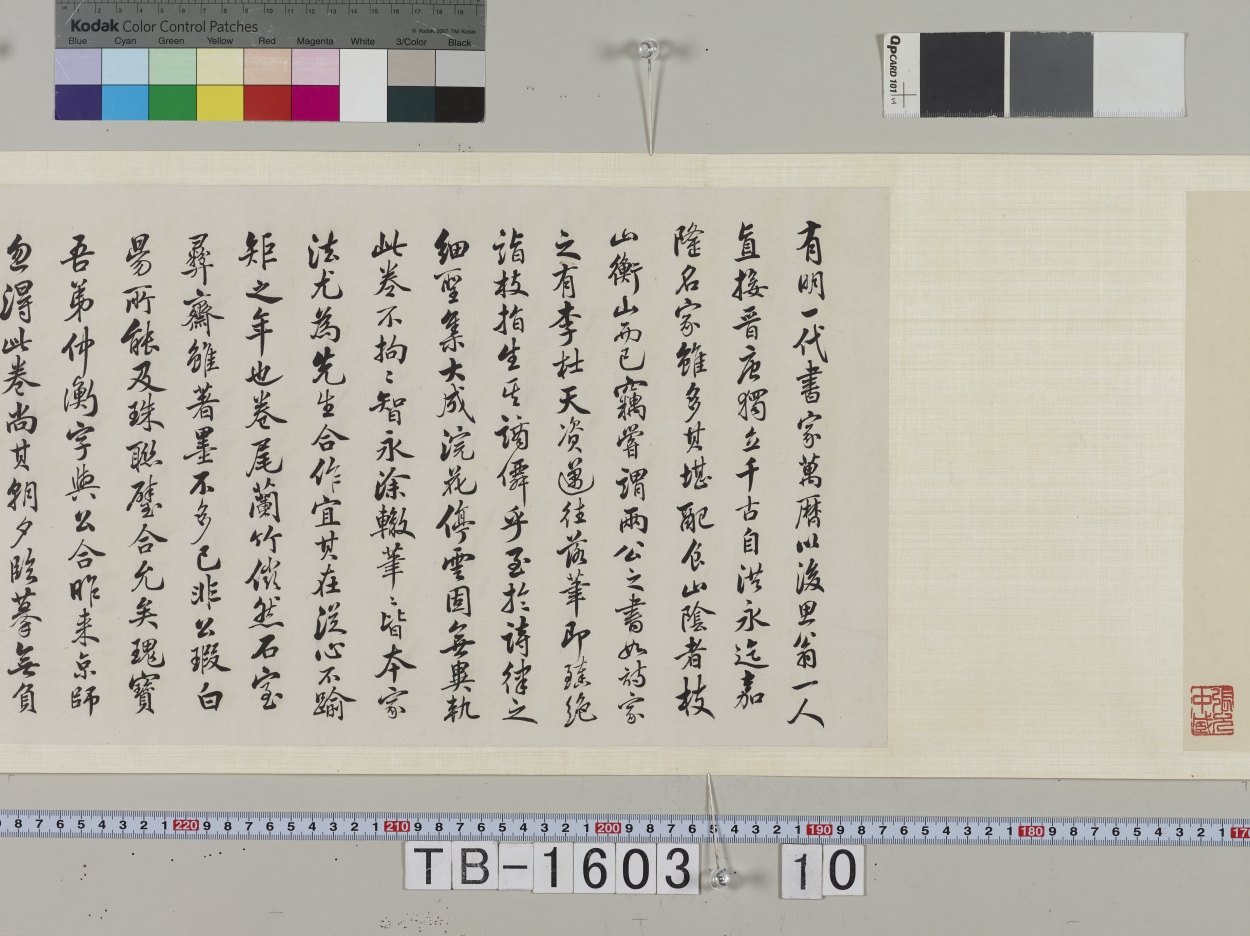 有明一代書家萬曆以後思翁一人
直接晉唐獨立千古自洪永迄嘉
隆名家雖多其堪配食山陰者枝
山衡山而已竊嘗謂兩公之書如詩家
之有李杜天資邁往落筆即臻絕
詣枝指生其謫僊乎至於詩律之
細聖集大成浣花停雲固無異軌
此卷不拘〻智永塗轍筆〻皆本家
法尤為先生合作宜其在從心不踰
矩之年也卷尾蘭竹儼然石室
彝齋雖著墨不多已非公瑕白
昜所能及珠聯璧合允矣瑰寶
吾弟仲衡字與公合昨來京師
忽得此卷尚其朝夕臨摹無負
張允中藏
Kodak Color Control Patches
Blue Cyan Green Yellow Red Magenta White 3/Color Black
QPCARD 101
9 8 7 6 5 4 3 2 1 220 9 8 7 6 5 4 3 2 1 210 9 8 7 6 5 4 3 2 1 200 9 8 7 6 5 4 3 2 1 190 9 8 7 6 5 4 3 2 1 180 9 8 7 6 5 4 3 2 1 170
TB-1603 10